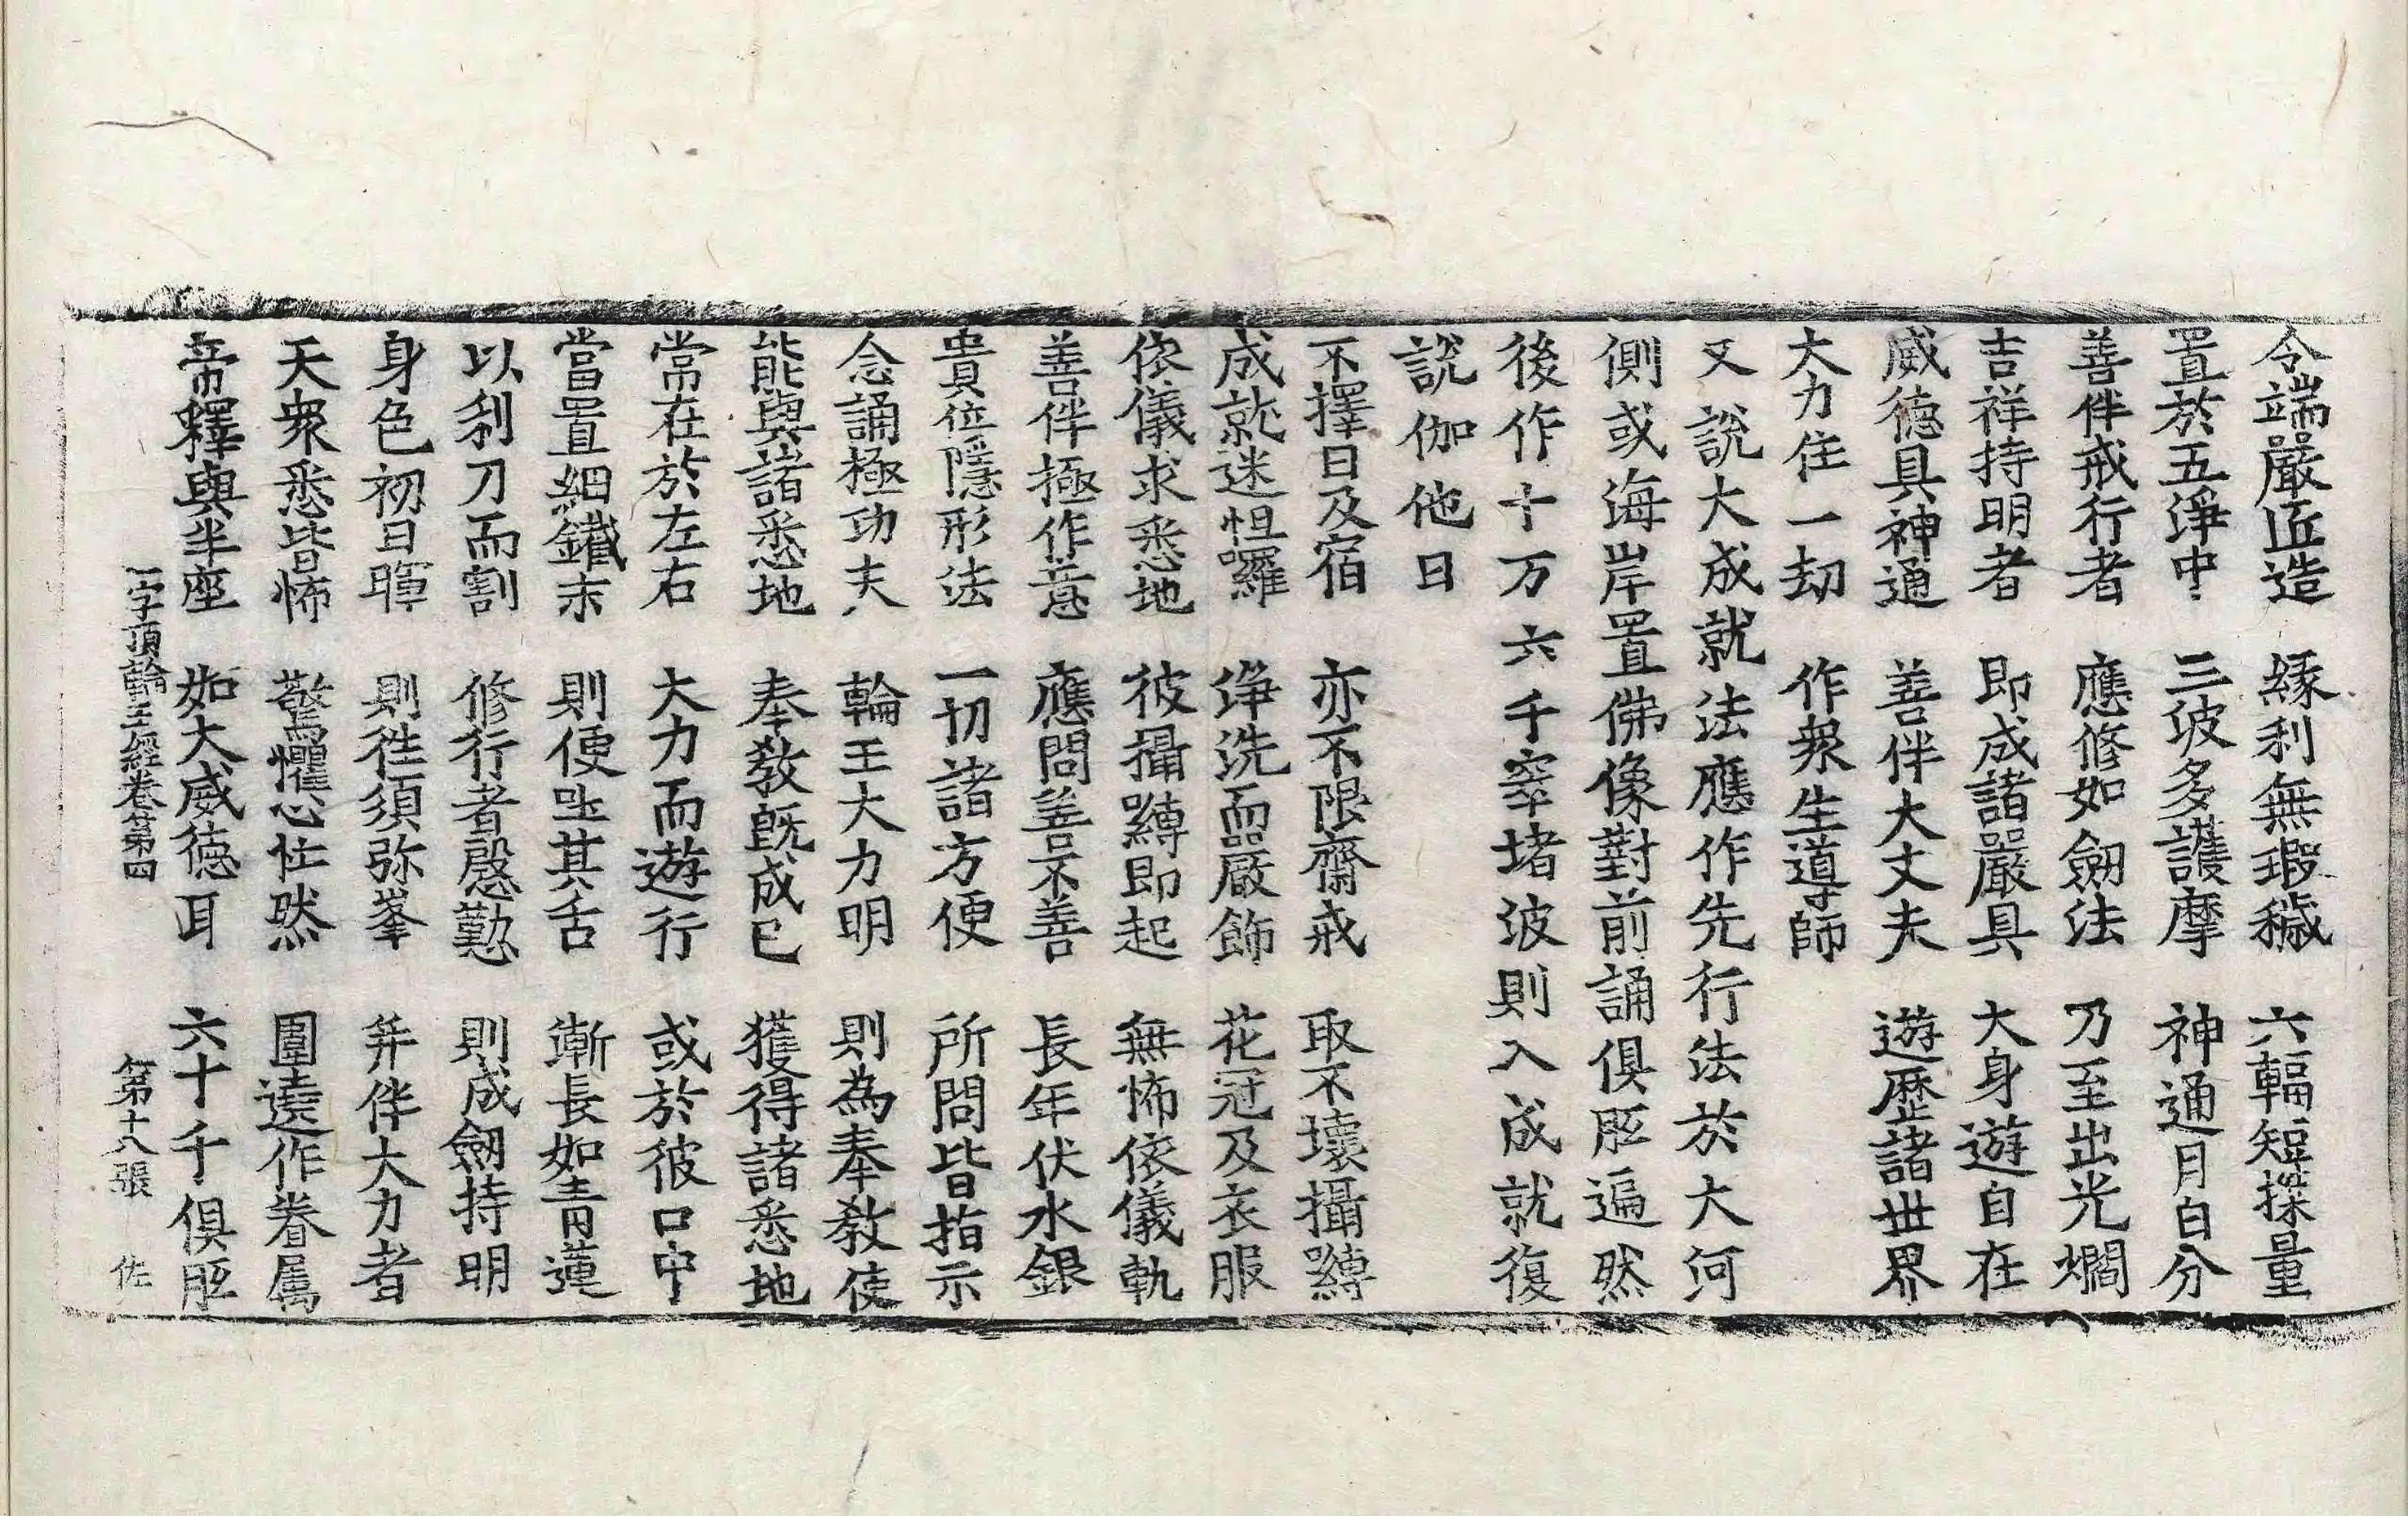 令端嚴匠造　緣利無瑕穢　六輻短搩量
置於五淨中　三波多護摩　神通月白分
善伴戒行者　應修如劒法　乃至出光爓
吉祥持明者　即成諸嚴具　大身遊自在
威德具神通　善伴大丈夫　遊歷諸世界
大力住一劫　作衆生導師
又說大成就法應作先行法於大河
側或海岸置佛像對前誦俱胝遍然
後作十万六千窣堵波則入成就復
說伽他曰
不擇日及宿　亦不限齋戒　取不壞攝嚩
成就迷怛囉　淨洗而嚴飾　花冠及衣服
依儀求悉地　彼攝嚩即起　無怖依儀軌
善伴極作意　應問善不善　長年伏水銀
貴位隱形法　一切諸方便　所問皆指示
念誦極功夫　輪王大力明　則為奉教使
能與諸悉地　奉教旣成已　獲得諸悉地
常在於左右　大力而遊行　或於彼口中
當置細鐵末　則便吐其舌　漸長如青蓮
以利刀而割　修行者慇懃　則成劒持明
身色初日暉　則徃須弥峯　并伴大力者
天衆悉皆怖　驚懼心怯然　圍遶作眷属
帝釋與半座　如大威德耳　六十千俱胝
一字頂輪王經卷第四　第十八張　佐